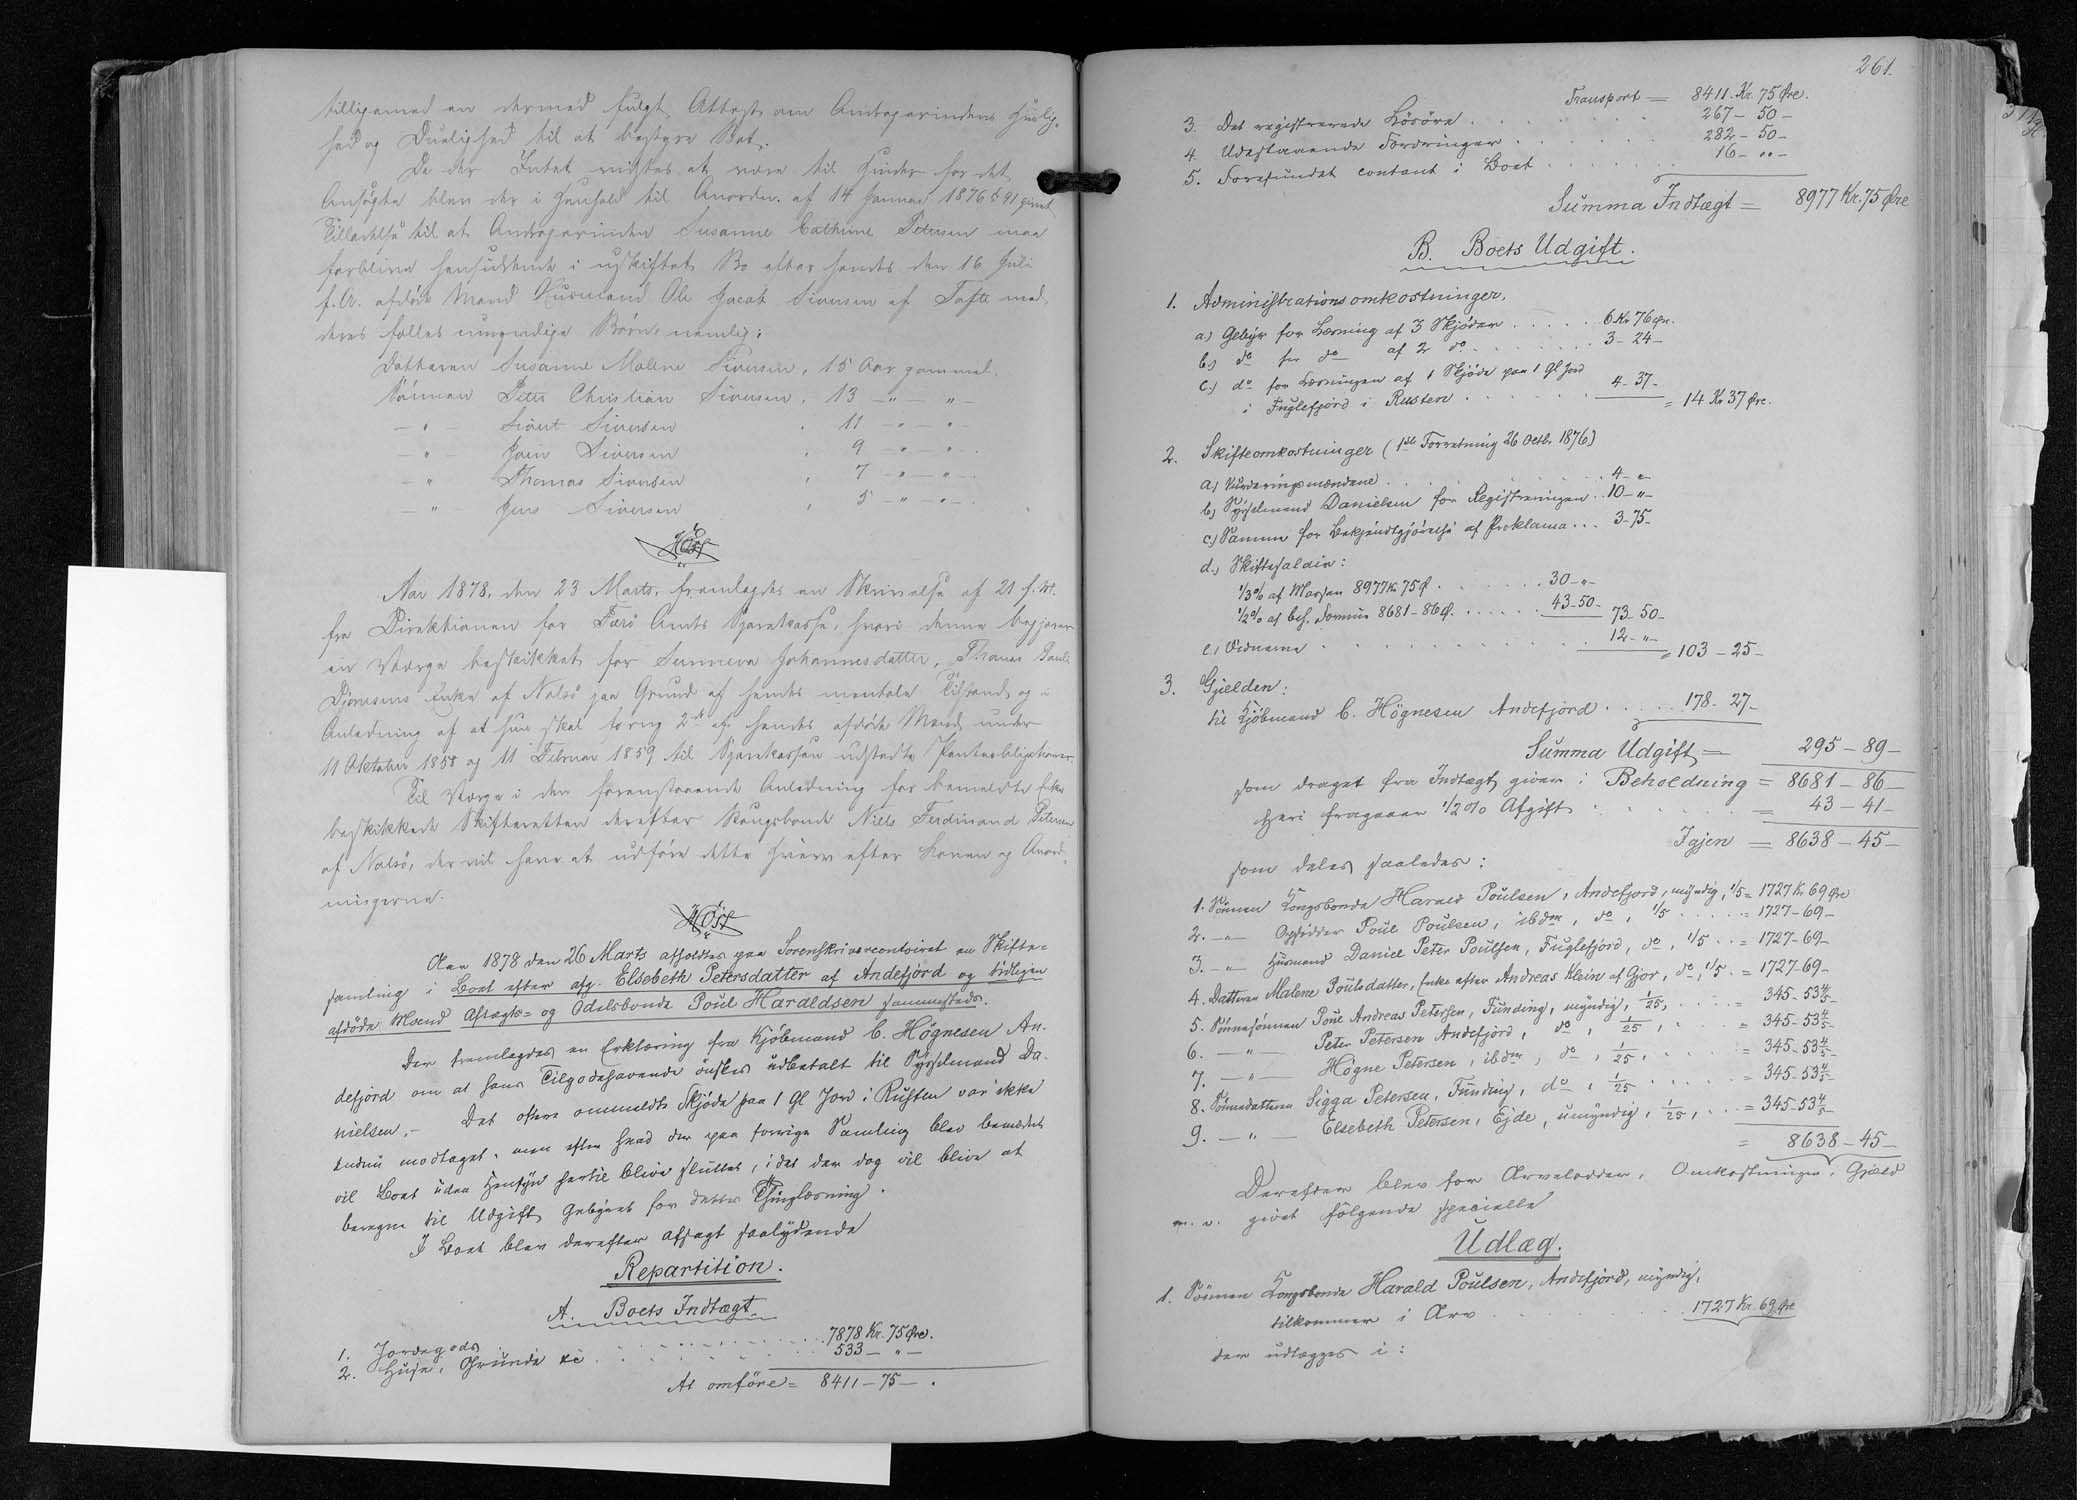 tilligemed en dermed fulgt Attest om Andragerindens Huslig-
hed og Duelighed til at bestyre Boet.
Da der Intet vidstes at være til Hinder for det
Ansøgte blev der i Henhold til Anordn. af 14 Januar 1876 § 91 givet
Tilladelse til at Andragerinden Susanne Cathrine Petersen maa
forblive hensiddende i uskiftet Bo efter hendes den 16 Juli
f. A. afdøde Mand Huusmand Ole Jacob Sivertsen af Tofte med
deres fælles umyndige Børn, nemlig:
Datteren Susanne Malene Sivertsen, 15 Aar gammel.
Sønnen Peter Christian Sivertsen, 13 — " — " —
— " — Sivert Sivertsen , 11 — " — " —
— " — Join Sivertsen , 9 — " — " —
— " — Thomas Sivertsen , 7 — " — " —
— " — Jens Sivertsen , 5 — " — " —
Høst
Aar 1878, den 23 Marts, fremlagdes en Skrivelse af 21 s. M.
fra Direktionen for Færø Amts Sparekasse, hvori denne begjærer
en Værge beskikket for Sunneva Johannesdatter, Thomas Pauli
Djonesens Enke af Nolsö paa Grund af hendes mentale Tilstand og i
Anledning af at hun skal forny 2de af hendes afdøde Mand under
11 Oktober 1858 og 11 Februar 1859 til Sparekassen udstedte Panteobligationer.
Til Værge i den foranstaaende Anledning for bemeldte Enke
beskikkede Skifteretten derefter Kongsbonde Niels Ferdinand Petersen
af Nolsö, der vil have at udføre dette Hverv efter Loven og Anord-
ningerne.
Høst
Aar 1878 den 26 Marts afholdtes paa Sorenskrivercontoiret en Skifte-
samling i Boet efter afg. Elsebeth Petersdatter af Andefjord og tidligen
afdöde Mand Aftægts- og Odelsbonde Poul Haraldsen sammesteds.
Der fremlagdes en Erklæring fra Kjöbmand C. Högnesen An-
defjord om at hans Tilgodehavende önskes udbetalt til Sysselmand Da-
nielsen.- Det oftere ommeldte Skjöde paa 1 Gl Jord i Rusten var ikke
endnu modtaget, men efter hvad der paa forrige Samling blev bemærket
vil Boet uden Hensyn hertil blive sluttet, idet der dog vil blive at
beregne til Udgift Gebyret for dettes Thinglæsning.
I Boet blev derefter afsagt saalydende
Repartition.
A. Boets Indtægt.
1. Jordegods . . . . . . 7878 Kr. 75 Øre.
2. Huse, Grunde &c . . . . . . 533 — " —
At omföre = 8411 — 75 — .
261.
Transport = 8411. Kr. 75 Øre.
3. Det registrerede Lösöre . . . . . . 267 — 50 —
4. Udestaaende Fordringer . . . . . . 282 — 50 —
5. Forefundet contant i Boet . . . . . . 16 — " —
Summa Indtægt = 8977 Kr. 75 Øre
B. Boets Udgift.
1. Administrationsomkostninger.
a) Gebyr for Læsning af 3 Skjöder . . . . . 6 Kr 76 Øre.
b) do for do af 2 do . . . . . . 3 — 24 —
c.) do for Læsningen af 1 Skjöde paa 1 Gl Jord
i Fuglefjord i Rusten . . . . . . 4 — 37 — = 14 Kr 37 Øre.
2. Skifteomkostninger (1ste Forretning 26 Octb. 1876)
a.) Vurderingsmændene . . . . . . 4 — " —
b) Sysselmand Danielsen for Registreringen . . 10 — " —
c.) Samme for Bekjendtgjörelse af Proklama . . . 3 — 75 —
d.) Skiftesalair:
1/3 % af Massen 8977 Kr 75 Ø . . . . . . 30 — " —
1/2 % af beh. Formue 8681 — 86 Ø. . . . . . 43 — 50 — 73 — 50 —
e.) Vidnerne . . . . . . 12 — " — = 103 — 25 —
3. Gjælden:
til Kjöbmand C. Högnesen Andefjord . . . . . 178 — 27 —
Summa Udgift = 295 — 89 —
som draget fra Indtægt giver i Beholdning = 8681 — 86 —
Heri fragaaer 1/2 % Afgift . . . . . = 43 — 41 —
Igjen = 8638 — 45 —
som deles saaledes:
1. Sönnen Kongsbonde Harald Poulsen, Andefjord, myndig, 1/5 = 1727 Kr 69 Øre
2. — " — Opsidder Poul Poulsen, ibdm, do, 1/5 . . . . . = 1727 — 69 —
3. — " — Husmand Daniel Peter Poulsen, Fuglefjord, do, 1/5 . . = 1727 — 69 —
4. Datteren Malene Poulsdatter, Enke efter Andreas Klein af Gjov, do, 1/5 . = 1727 — 69 —
5. Sönnesönnen Poul Andreas Petersen, Funding, myndig, 1/25, . . . . = 345 — 53 4/5 —
6. — " — Peter Petersen Andefjord, do, 1/25, . . . . = 345 — 53 4/5 —
7. — " — Högne Petersen, ibdm, do, 1/25, . . . . = 345 — 53 4/5 —
8. Sönnedatteren Sigga Petersen, Funding, do, 1/25 . . . . . = 345 — 53 4/5 —
9. — " — Elsebeth Petersen, Ejde, umyndig, 1/25, . . . = 345 — 53 4/5 —
= 8638 — 45 —
Derefter blev for Arvelodder, Omkostninger, Gjæld
m. v. givet fölgende specielle
Udlæg.
1. Sönnen Kongsbonde Harald Poulsen, Andefjord, myndig,
tilkommer i Arv . . . . . . 1727 Kr. 69 Øre
der udlægges i: